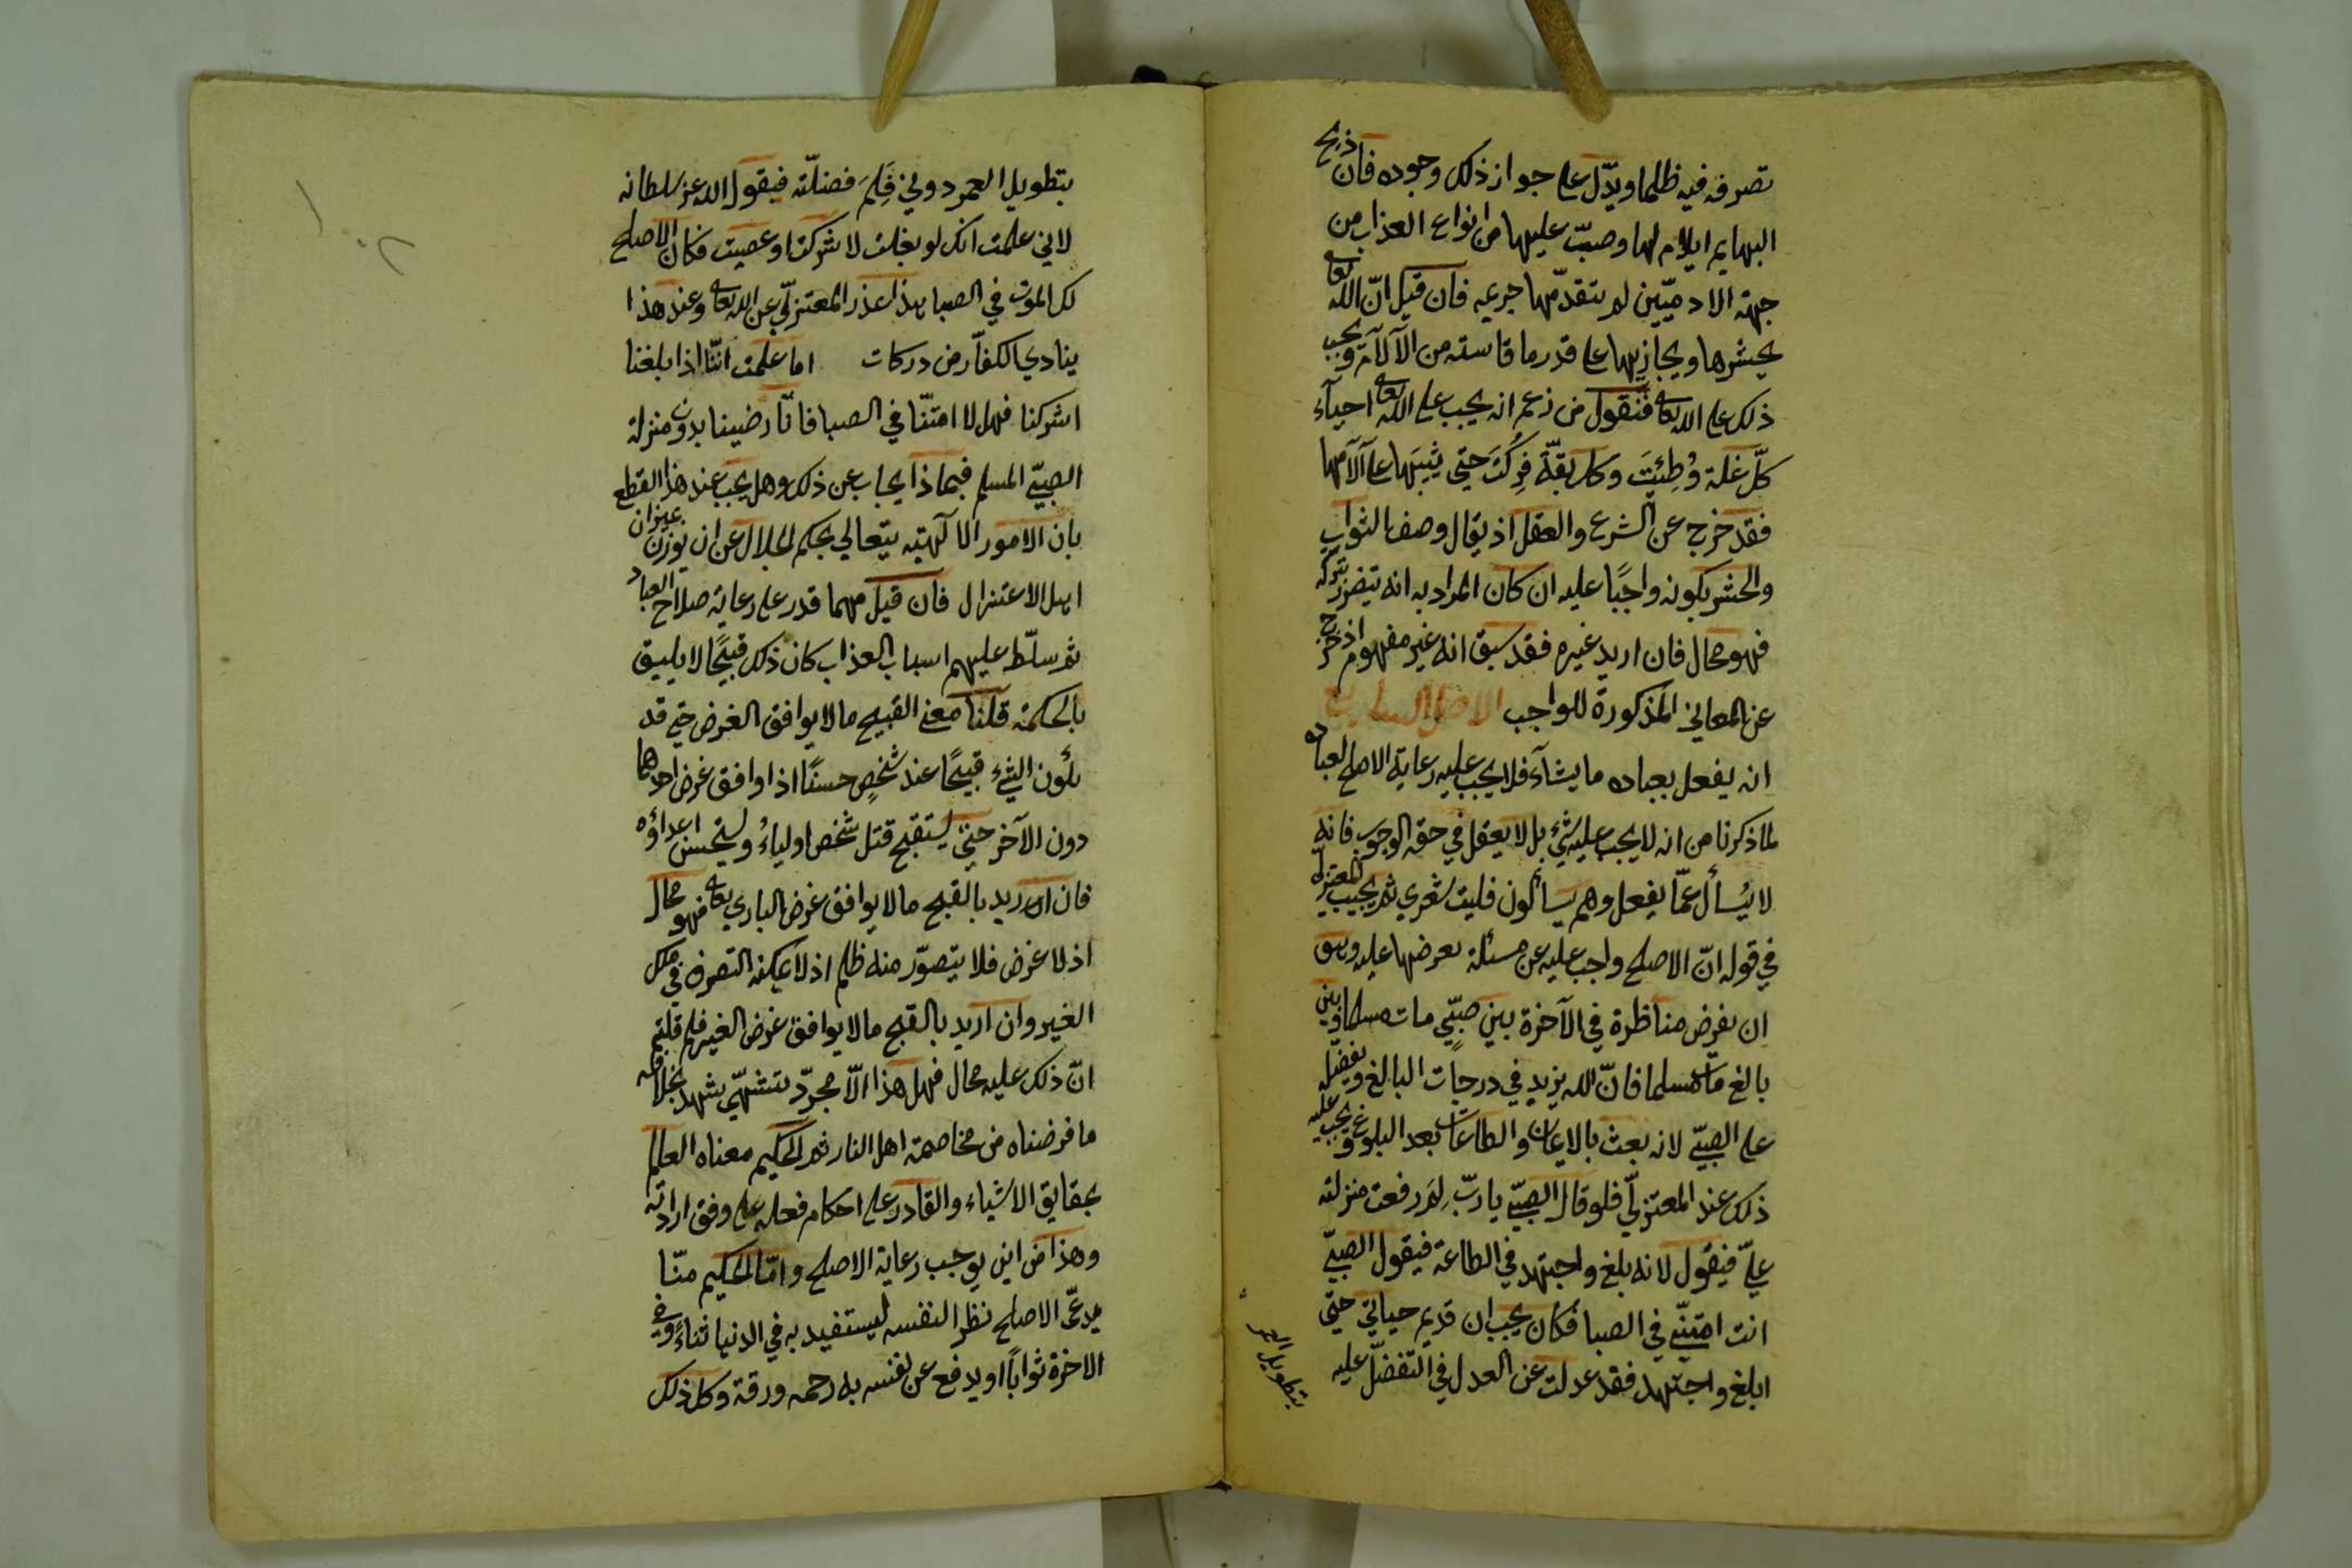 تصرفه فيه ظلما ويدّل على جواز ذلك وجوده فان ذبح
البهايم ايلام لها وصبّ عليها من انواع العذاب من
جهة الادميّين لم يتقدّمها جريمه فان قيل انّ الله تعا
يحشرها ويجازيها على قدر ما قاسته من الآلآم ويجب
ذلك على الله تعا فنقول من زعم انه يجب على الله تعا احيآء
كلّ نملة وُطِئَت وكل بقّة فُرِكَت حتي يثيبَها على آلآمها
فقد خرج عن الشرع والعقل اذ يقال وصف الثواب
والحشر بكونه واجبًا عليه ان كان المراد به انه يتضرر بتركه
فهو محال فان اريد غيره فقد سبق انه غير مفهوم اذ خرج
عن المعاني المذكورة للواجب الاصل السابع
انه يفعل بعباده ما يشآء فلا يجب عليه رعاية الاصلح لعباده
لما ذكرنا من انه لا يجب عليه شئ بل لا يعقل في حقه الوجوب فانه
لا يُسأل عمّا يفعل وهم يسألون فليت شعري ثم يجيب المعتزلّي
في قوله انّ الاصلح واجب عليه عن مسئلة نعرضها عليه وهو
ان نفرض مناظرة في الآخرة بين صبّيٍ مات مسلما وبين
بالغ مات مسلما فانّ الله يزيد في درجات البالغ ويفضّله
على الصبيّ لانه بعث بالايمان والطاعات بعد البلوغ ويجب عليه
ذلك عند المعتزلّي فلو قال الصبيّ يا ربّ لِمَ رفعت منزلته
عليّ فيقول لانه بلغ واجتهد في الطاعة فيقول الصبيّ
انت امتنّي في الصبا فكان يجب ان قديم حياتي حتّى
ابلغ واجتهد فقد عدلت عن العدل في التفضّل عليه
بتطويل العمر
بتطويل العمر دوني فَلِمَ فضلّته فيقول الله عز سلطانه
لاني علمت انك لو بغلت لا شركت او عصيت فكان الاصلح
لك الموت في الصبا هذا عذر المعتزلّي عن الله تعا وعند هذا
ينادي الكفاّر من دركات اما علمت انّنا اذا بلغنا
اشركنا فهل لا امتنّا في الصبا فانّا رضينا بدون منزلة
الصبيّ المسلم فبماذا يجاب عن ذلك وهل يجب عند هذا القطع
بان الامور الالٓهيّه يتعالي بحكم الجلال عن ان يوزن بميزان
اهل الاعتزال فان قيل مهما قدر على رعاية صلاح العباد
ثم سلّط عليهم اسباب العذاب كان ذلك قبيحًا لا يليق
بالحكمة قلنا معني القبيح ما لا يوافق الغرض حتي قد
يكون الشئ قبيحًا عند شخصٍ حسنًا اذا وافق غرض احدهما
دون الآخر حتيّ يستقبح قتل شخص اولياءُ ويستحسن اعداؤه
فان اريد بالقبح ما لا يوافق غرض الباري تعا فهو محال
اذ لا غرض فلا يتصوّر منه ظلم اذ لا يمكنه التصرف في ملك
الغير وان اريد بالقبح ما لا يوافق غرض الغير فلم قلتم
انّ ذلك عليه محال فهل هذا الاّ مجرّد تشهّي يشهد بخلافه
ما فرضناه من مخاصمة اهل النار ثم الحكيم معناه العالم
بحقايق الاشياء والقادر على احكام فعله على وفق ارادته
وهذا من اين يوجب رعاية الاصلح وامّا الحكيم منّا
يدعّى الاصلح نظرا لنفسه ليستفيد به في الدنيا ثناءً وفي
الاخرة ثوابًا او يدفع عن نفسه به رحمه ورقة وكل ذلك